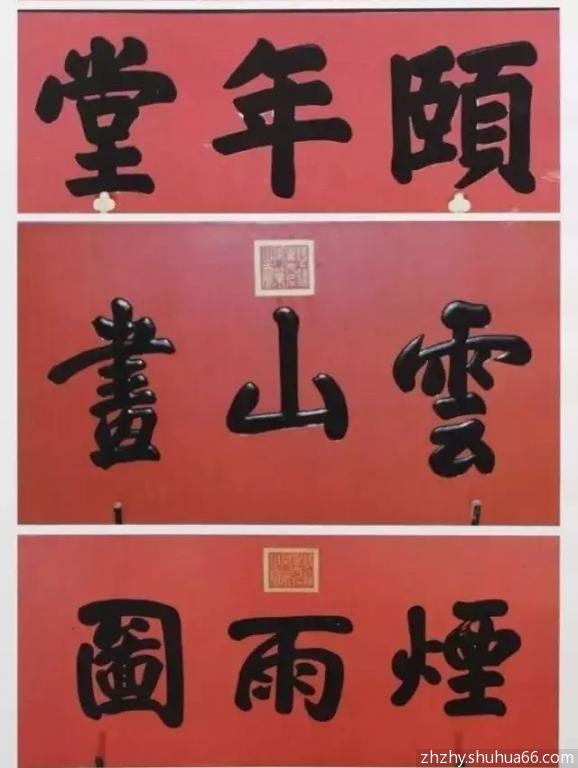 頤年堂
雲山畫
煙雨圖
zhzhy.shuhua66.com